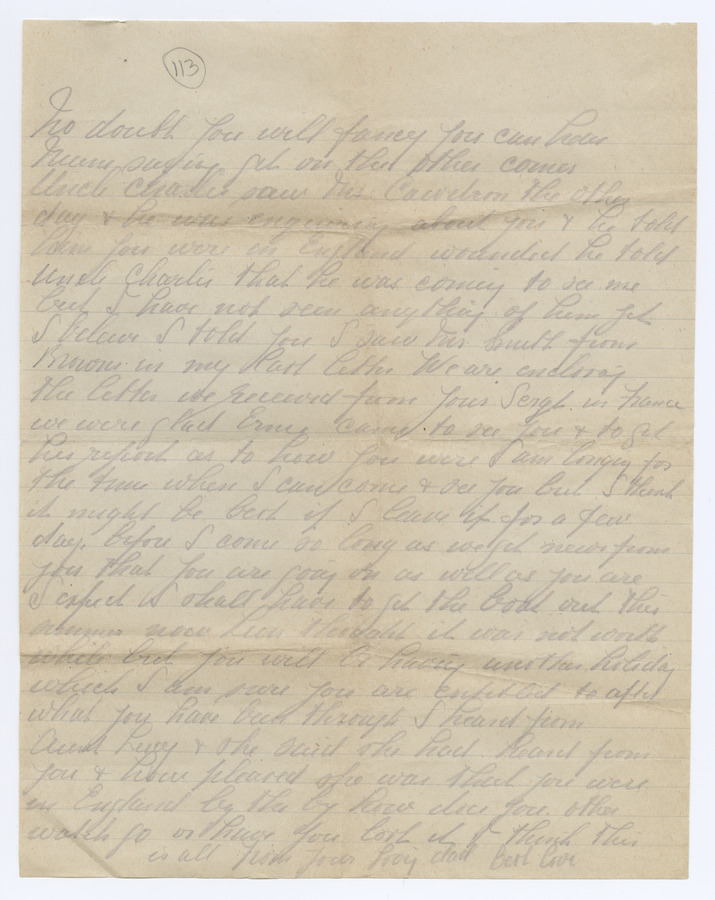 113
No doubt you will fancy you can hear
Mum saying get on the other comes
Uncle Charlie saw Mr the other
day & he was enquiring about you & he told
him you were in England wounded he told
Uncle Charlie that he was coming to see me
but I have not seen anything of him yet
I beleive I told you I saw Mr Smith from
Browns in my last letter We are enclosing
the letter we received from your Sergt. in France
we were glad Ernie came to see you & to get
his report as to how you were I am longing for
the time when I can come & see you but I think
it might be best if I leave it for a few
days before I come so long as we get news from
you that you are going on as well as you are
I expect I shall have to get the boat out this
summer now been thought it was not worth
while but you will be having another holiday
which I am sure you are entitled to after
what you have been through I heard from
Aunt Lucy & she said she had heard from
you & how pleased she was that you were
in England by the by how does your other
watch go or have you lost it I think this
is all from your loving dad Best love